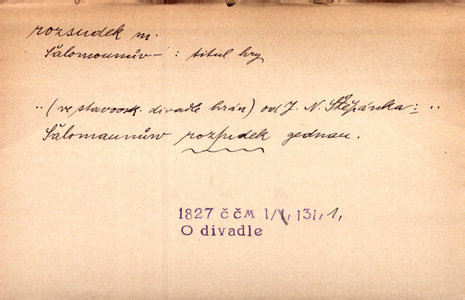 rozsudek m.
Šalomounův – : titul hry
„(ve stavovsk. divadle hrán) od J. N. Štěpánka: „
Šalomaunůw rozsudek gednau.
1827 ČČM I/1, 131, 1,
O divadle